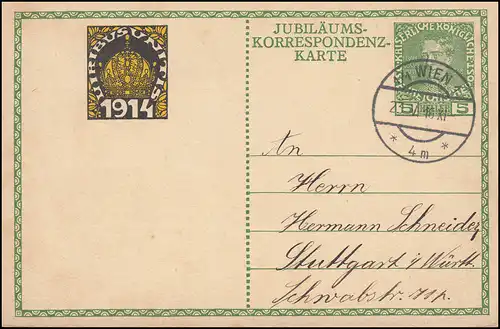 VIRIBUS UNITIS
1914
JUBILÄUMS-
KORRESPONDENZ-
KARTE
WIEN
* 4m *
5
An
Herrn
Hermann Schneider
Stuttgart i/ Württ.
Schwabstr.